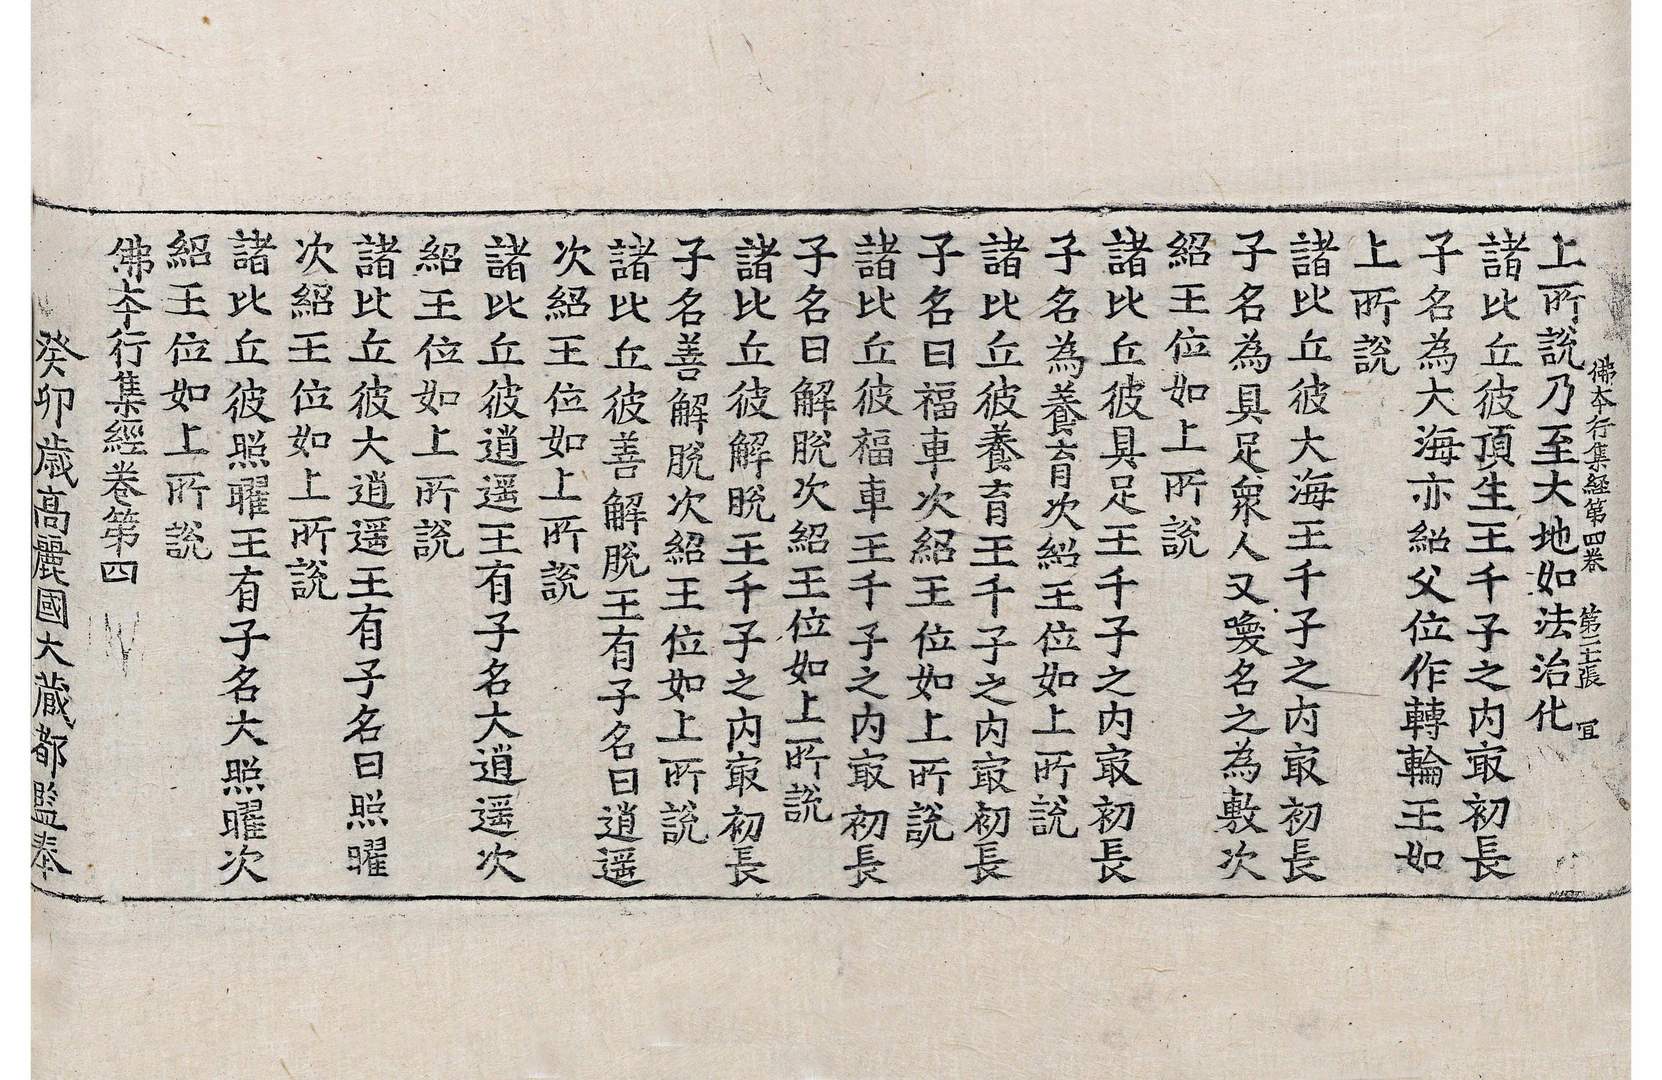 佛夲行集経第四卷　第二十張　冝
上所說乃至大地如法治化
諸比丘彼頂生王千子之内㝡初長
子名為大海亦紹父位作轉輪王如
上所說
諸比丘彼大海王千子之内㝡初長
子名為具足衆人又喚名之為敷次
紹王位如上所說
諸比丘彼具足王千子之内㝡初長
子名為養育次紹王位如上所說
諸比丘彼養育王千子之内㝡初長
子名曰福車次紹王位如上所說
諸比丘彼福車王千子之内㝡初長
子名曰解脫次紹王位如上所說
諸比丘彼解脫王千子之内㝡初長
子名善解脫次紹王位如上所說
諸比丘彼善解脫王有子名曰逍遥
次紹王位如上所說
諸比丘彼逍遥王有子名大逍遥次
紹王位如上所說
諸比丘彼大逍遥王有子名曰照曜
次紹王位如上所說
諸比丘彼照曜王有子名大照曜次
紹王位如上所說
佛夲行集經卷第四
癸卯歳高麗國大蔵都監奉